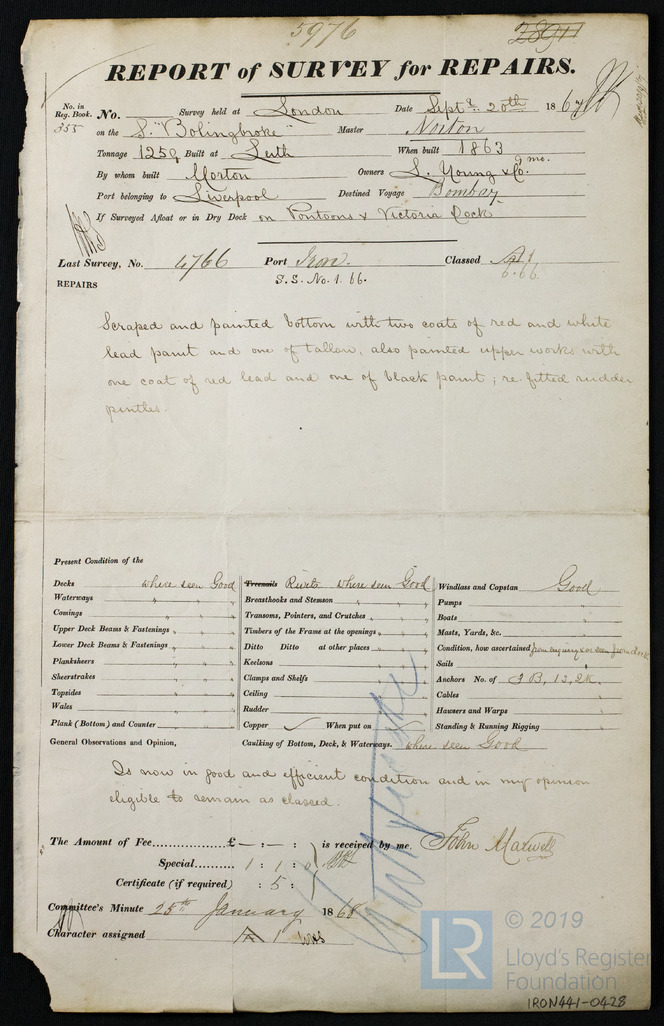 5976
REPORT of SURVEY for REPAIRS.
No. in Reg. Book. No. Survey held at London Date Septr 20th 1867
355 on the S. "Bolingbroke" Master Norton
Tonnage 1259 Built at Leith When built 1863 9 mo.
By whom built Morton Owners L. Young & Co.
Port belonging to Liverpool Destined Voyage Bombay
If Surveyed Afloat or in Dry Dock on Pontoons & Victoria Dock
Last Survey, No. 4766 Port Iron. Classed A1
S.S. No. 1. 66. 6.66
REPAIRS
Scraped and painted bottom with two coats of red and white
lead paint and one of tallow, also painted upper works with
one coat of red lead and one of black paint; re-fitted rudder
pintles.
Present Condition of the
Decks where seen Good Treenails Rivets where seen Good Windlass and Capstan Good
Waterways " " " Breasthooks and Stemson " " " Pumps "
Comings " " " Transoms, Pointers, and Crutches " " " Boats "
Upper Deck Beams & Fastenings " " " Timbers of the Frame at the openings " " " Masts, Yards, &c. "
Lower Deck Beams & Fastenings " " " Ditto Ditto at other places " " " Condition, how ascertained from inquiry & as seen from deck
Planksheers " " " Keelsons " " " Sails "
Sheerstrakes " " " Clamps and Shelfs " " " Anchors No. of 3B, 1S, 2K.
Topsides " " " Ceiling " " " Cables "
Wales " " " Rudder " " " Hawsers and Warps "
Plank (Bottom) and Counter " " " Copper When put on Standing & Running Rigging "
General Observations and Opinion, Caulking of Bottom, Deck, & Waterways. where seen Good
Is now in good and efficient condition and in my opinion
eligible to remain as classed.
The Amount of Fee............... £ — : — : is received by me, John Maxwell
Special.......... 1 : 1 : 0
Certificate (if required) : 5 :
Committee's Minute 25th January 1868
Character assigned A 1
LR © 2019
Lloyd's Register
Foundation
IRON441-0428